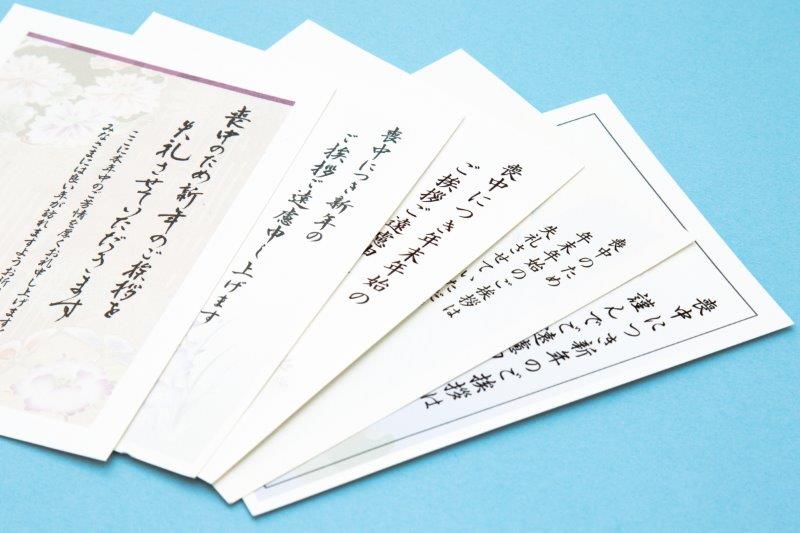 喪中のため新年のご挨拶を
失礼させていただきます
ここに本年中のご芳情を厚くお礼申し上げます
みなさまには良い年が訪れますようお祈り
喪中につき新年の
ご挨拶ご遠慮申し上げます
喪中につき年末年始の
ご挨拶ご遠慮
喪中のため
年末年始のご挨拶は
失礼させていただ
喪中につき新年のご挨拶は
謹んでご遠慮